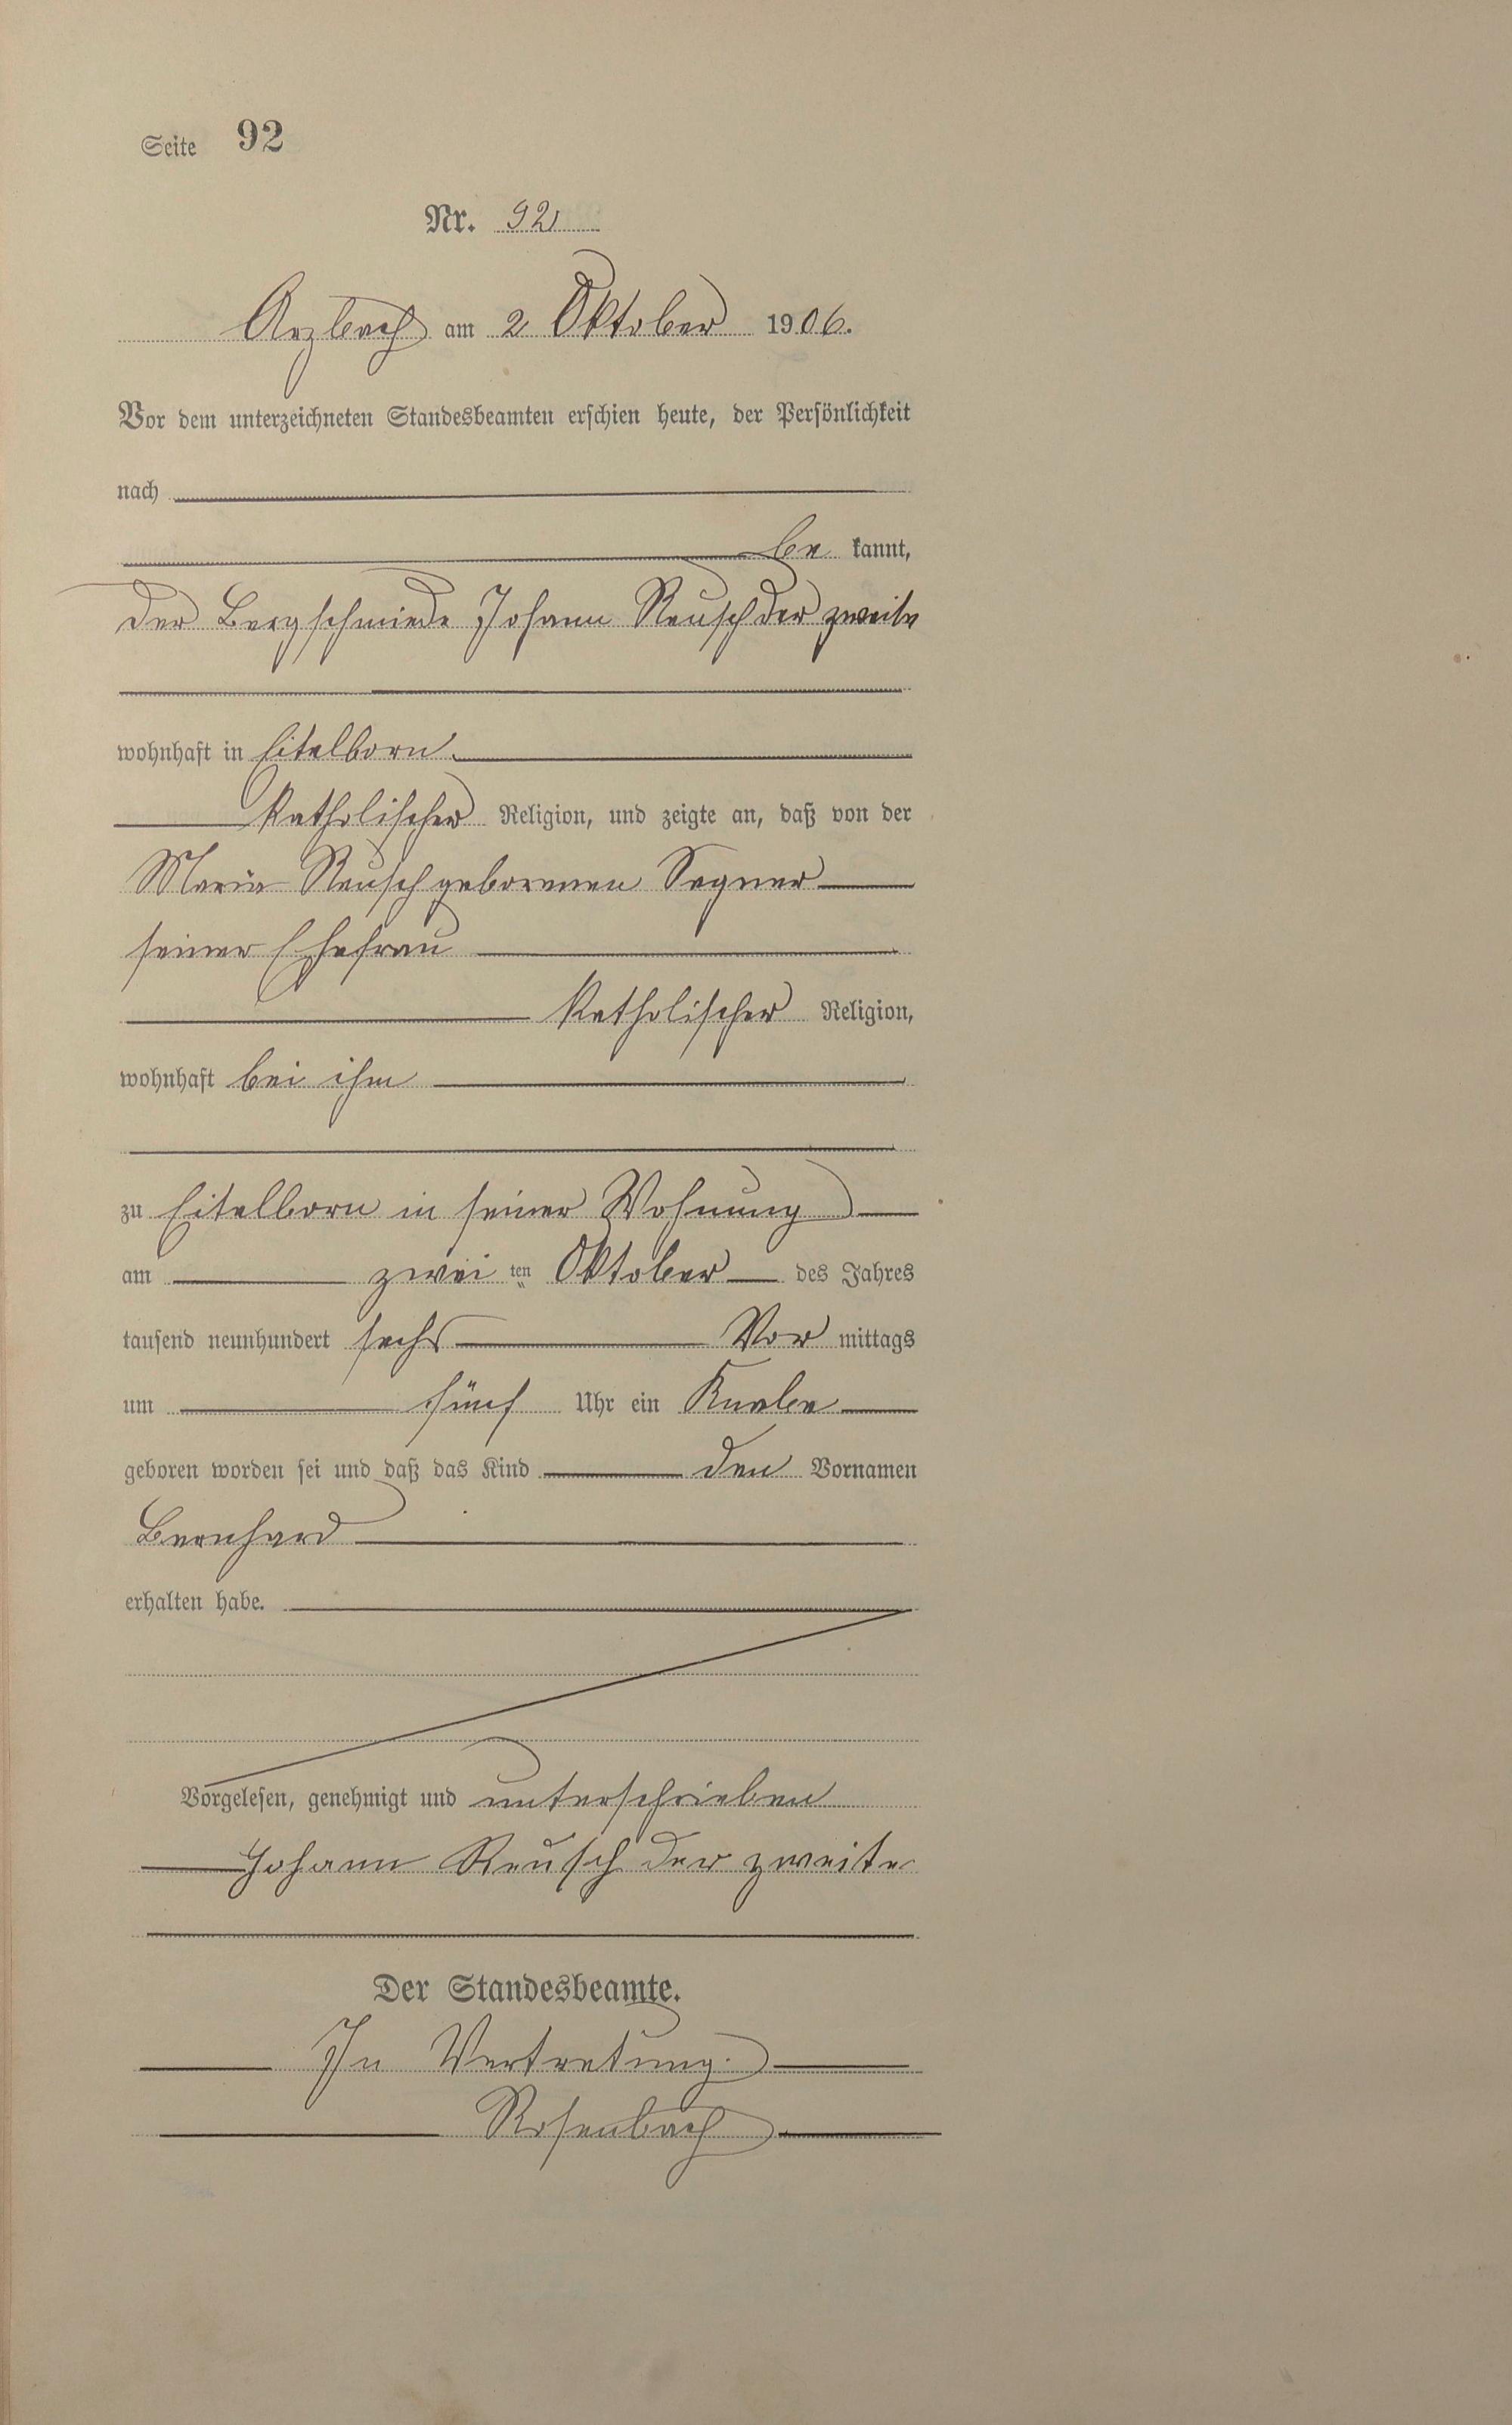 Seite 92
Nr. 92
Arzbach am 2 Oktober 1906.
Vor dem unterzeichneten Standesbeamten erschien heute, der Persönlichkeit
nach
be kannt,
der Bergschmiede Johann Reusch der zweite
wohnhaft in Eitelborn
katholischer Religion, und zeigte an, daß von der
Maria Reusch geborenen Segner
seiner Ehefrau
katholischer Religion,
wohnhaft bei ihm
zu Eitelborn in seiner Wohnung
am zwei ten Oktober des Jahres
tausend neunhundert sechs Vor mittags
um fünf Uhr ein Knabe
geboren worden sei und daß das Kind den Vornamen
Bernhard
erhalten habe.
Vorgelesen, genehmigt und unterschrieben
Johann Reusch der zweite
Der Standesbeamte.
In Vertretung.
Rosenbach